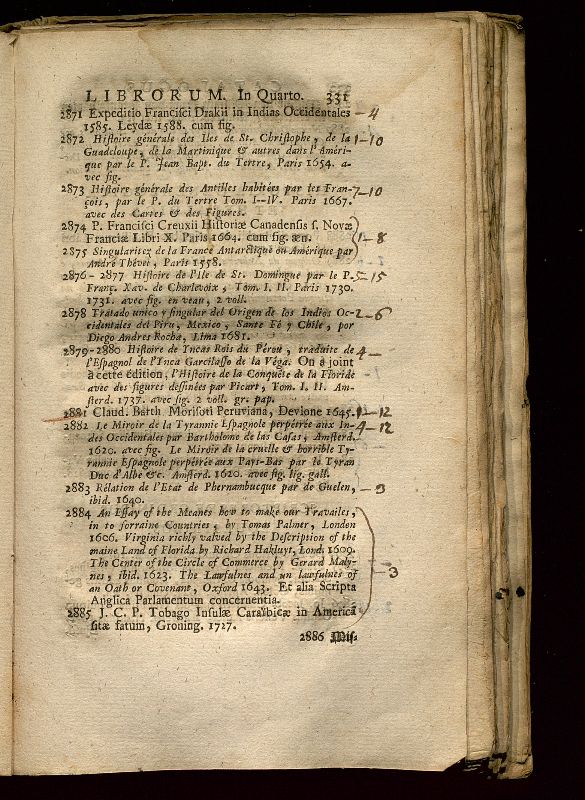 LIBRORUM. In Quarto. 331
2871 Expeditio Francisci Drakii in Indias Occidentales – 4
1585. Leydæ 1588. cum fig.
2872 Histoire générale des Iles de St. Christophe, de la 1–10
Guadeloupe, de la Martinique & autres dans l'Améri-
que par le P. Jean Bapt. du Tertre, Paris 1654. a-
vec fig.
2873 Histoire générale des Antilles habitées par les Fran- 7–10
çois, par le P. du Tertre Tom. I--IV. Paris 1667.
avec des Cartes & des Figures.
2874 P. Francisci Creuxii Historiæ Canadensis s. Novæ
Franciæ Libri X. Paris 1664. cum fig. æn. 1–8
2875 Singularitez de la France Antarctique ou Amérique par
André Thévet, Paris 1558.
2876-2877 Histoire de l'Ile de St. Domingue par le P. 5–15
Franç. Xav. de Charlevoix, Tom. I. II. Paris 1730.
1731. avec fig. en veau, 2 voll.
2878 Tratado unico y singular del Origen de los Indios Oc- 2–6
cidentales del Piru, Mexico, Sante Fé y Chile, por
Diego Andres Rocha, Lima 1681.
2879-2880 Histoire de Yncas Rois du Pérou, traduite de 4–
l'Espagnol de l'Ynca Garcilasso de la Véga. On a joint
à cette édition, l'Histoire de la Conquête de la Floride
avec des figures dessinées par Picart, Tom. I. II. Am-
sterd. 1737. avec fig. 2 voll. gr. pap.
2881 Claud. Barth. Morisoti Peruviana, Devione 1645. 1–12
2882 Le Miroir de la Tyrannie Espagnole perpétrée aux In- – 4–12
des Occidentales par Bartholome de las Casas, Amsterd.
1620. avec fig. Le Miroir de la cruelle & horrible Ty-
rannie Espagnole perpétrée aux Pays-Bas par le Tyran
Duc d'Albe &c. Amsterd. 1620. avec fig. lig. gall.
2883 Rélation de l'Etat de Phernambucque par de Guelen, – 3
ibid. 1640.
2884 An Essay of the Meanes how to make our Travailes,
in to forraine Countries, by Tomas Palmer, London
1606. Virginia richly valved by the Description of the
maine Land of Florida by Richard Hakluyt, Lond. 1609.
The Center of the Circle of Commerce by Gerard Maly-
nes, ibid. 1623. The Lawfulnes and un lawfulnes of – 3
an Oath or Covenant, Oxford 1643. Et alia Scripta
Anglica Parlamentum concernentia.
2885 J. C. P. Tobago Insulæ Caraïbicæ in America
sitæ fatum, Groning. 1727.
2886 Mis-